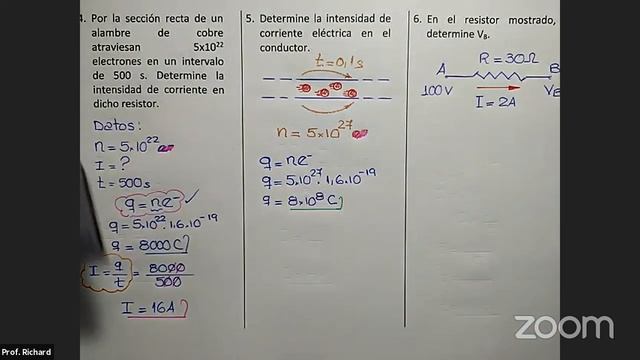 4. Por la sección recta de un
alambre de cobre
atraviesan 5x10²²
electrones en un intervalo
de 500 s. Determine la
intensidad de corriente en
dicho resistor.
Datos:
n = 5×10²² e-
I = ?
t = 500s
q = ne-
q = 5.10²² . 1,6.10⁻¹⁹
q = 8000C
I = q/t = 8000/500
I = 16A
5. Determine la intensidad de
corriente eléctrica en el
conductor.
t = 0,1s
n = 5×10²⁷ e-
q = ne-
q = 5.10²⁷ . 1,6.10⁻¹⁹
q = 8×10⁸ C
6. En el resistor mostrado,
determine V_B.
R = 30Ω
A B
100V V_B
I = 2A
Prof. Richard
zoom